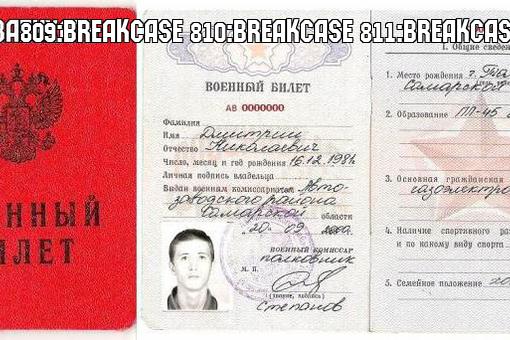 BREAKCASE 810:BREAKCASE 811:BREAKCASE
ЕННЫЙ
ИЛЕТ
ВОЕННЫЙ БИЛЕТ
АВ 0000000
Фамилия
Имя Дмитрий
Отчество Николаевич
Число, месяц и год рождения 16.12.198
Личная подпись владельца
Выдан военным комиссариатом Авто-
заводского района
Самарской области
20 09
ВОЕННЫЙ КОМИССАР
полковник
М. П.
(звание, подпись)
Степанов
I. Общие сведе
1. Место рождения г.
Самарской
2. Образование ПЛ-45
3. Основная гражданская
газоэлектро
4. Наличие спортивного раз
и по какому виду спорта
5. Семейное положение